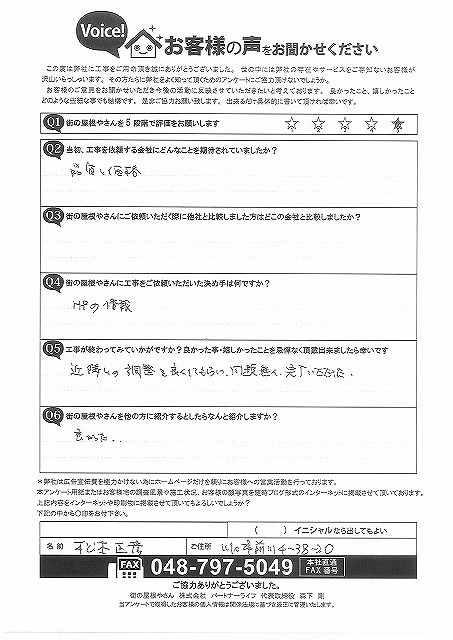 Voice!
お客様の声をお聞かせください
この度は弊社に工事をご用命頂き誠にありがとうございました。世の中には弊社の存在やサービスをご存知ないお客様が
沢山いらっしゃいます。その方たちに弊社をよく知って頂くためのアンケートにご協力頂けないでしょうか。
お客様のご意見をお聞かせいただき今後の活動に反映させていただきたいと考えております。良かったこと、嬉しかったこと
どのような些細な事でも結構です。是非ご協力お願い致します。出来るだけ具体的に書いて頂ければ幸いです。
Q1 街の屋根やさんを5段階で評価をお願いします ☆ ☆ ☆ ☆ ★
Q2 当初、工事を依頼する会社にどんなことを期待されていましたか?
品質と価格
Q3 街の屋根やさんにご依頼いただく際に他社と比較しました方はどこの会社と比較しましたか?
Q4 街の屋根やさんに工事をご依頼いただいた決め手は何ですか?
HPの情報
Q5 工事が終わってみていかがですか?良かった事・嬉しかったことを忌憚なく頂戴出来ましたら幸いです
近隣との調整を良くしてもらい、問題無く、完了いただけた.
Q6 街の屋根やさんを他の方に紹介するとしたらなんと紹介しますか?
良かった..
*弊社は広告宣伝費を極力かけない為にホームページだけを頼りにお客様への営業活動を行っております。
本アンケート用紙またはお客様宅の調査風景や施工状況、お客様の顔写真を随時ブログ形式のインターネットに掲載させて頂いております。
上記内容をインターネットや印刷物に掲載させて頂いてもよろしいでしょうか?
下記の中から〇印をお付下さい。
( ) イニシャルなら出してもよい
名前 ご住所 前川4-38-20
FAX 048-797-5049 本社直通 FAX番号
ご協力ありがとうございました。
街の屋根やさん 株式会社 パートナーライフ 代表取締役 森下 剛
当アンケートで取得したお客様の個人情報は関係法規に基づき厳正に管理いたします。